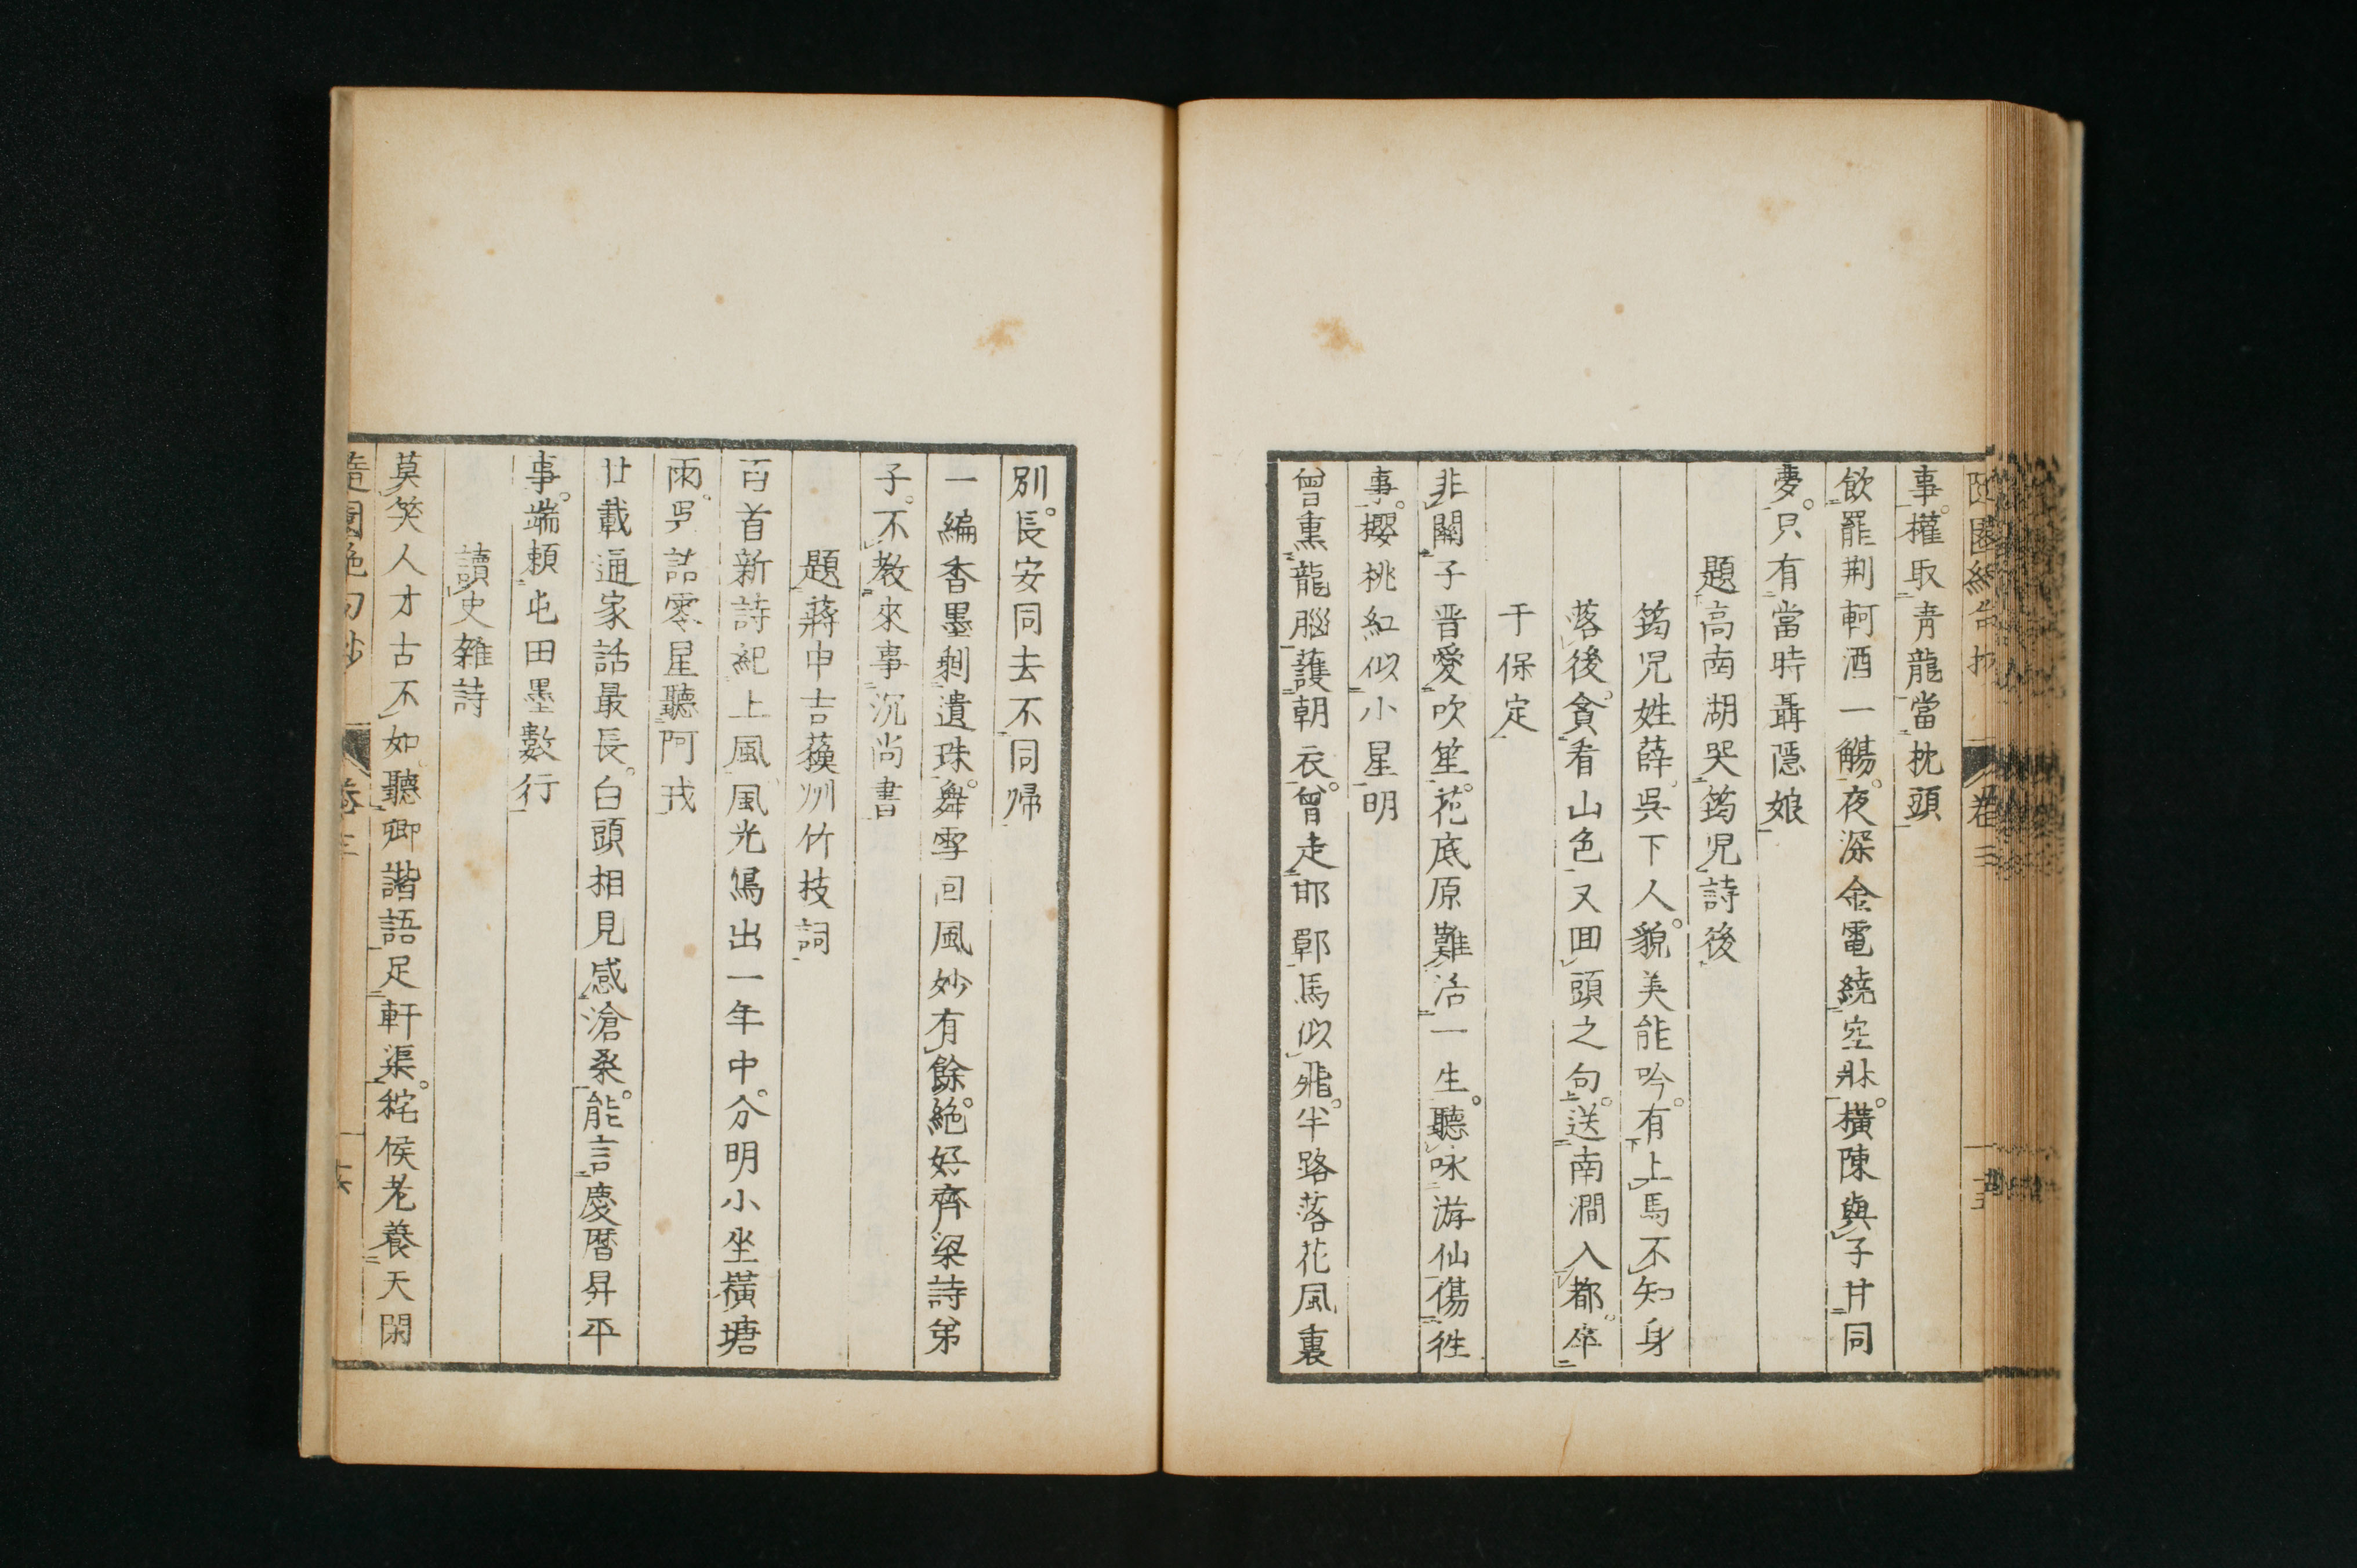 事。權取青龍當枕頭
飲罷荆軻酒一觴。夜深金電繞空牀。橫陳與子甘同
夢。只有當時聶隱娘
題高南湖哭筠児詩後
筠児姓薛。吳下人。貌美能吟。有上馬不知身
落後。貪看山色又回頭之句。送南澗入都。卒
于保定
非關子晋愛吹笙。花底原難活一生。聽咏游仙傷徃
事。櫻桃紅似小星明
曾熏龍腦護朝衣。曾走邯鄲馬似飛。半路落花風裏
別。長安同去不同帰
一編香墨剩遺珠。舞雪回風妙有餘。絶好齊梁詩弟
子。不教來事沉尚書
題蔣申吉蘋洲竹枝詞
百首新詩紀土風。風光寫出一年中。分明小坐橫塘
雨。詰零星聽阿戎
廿載通家話最長。白頭相見感滄桑。能言慶曆昇平
事。端頼屯田墨數行
讀史雜詩
莫笑人才古不如。聽卿諧語足軒渠。秺侯老養天閑
隨園絶句抄 卷三